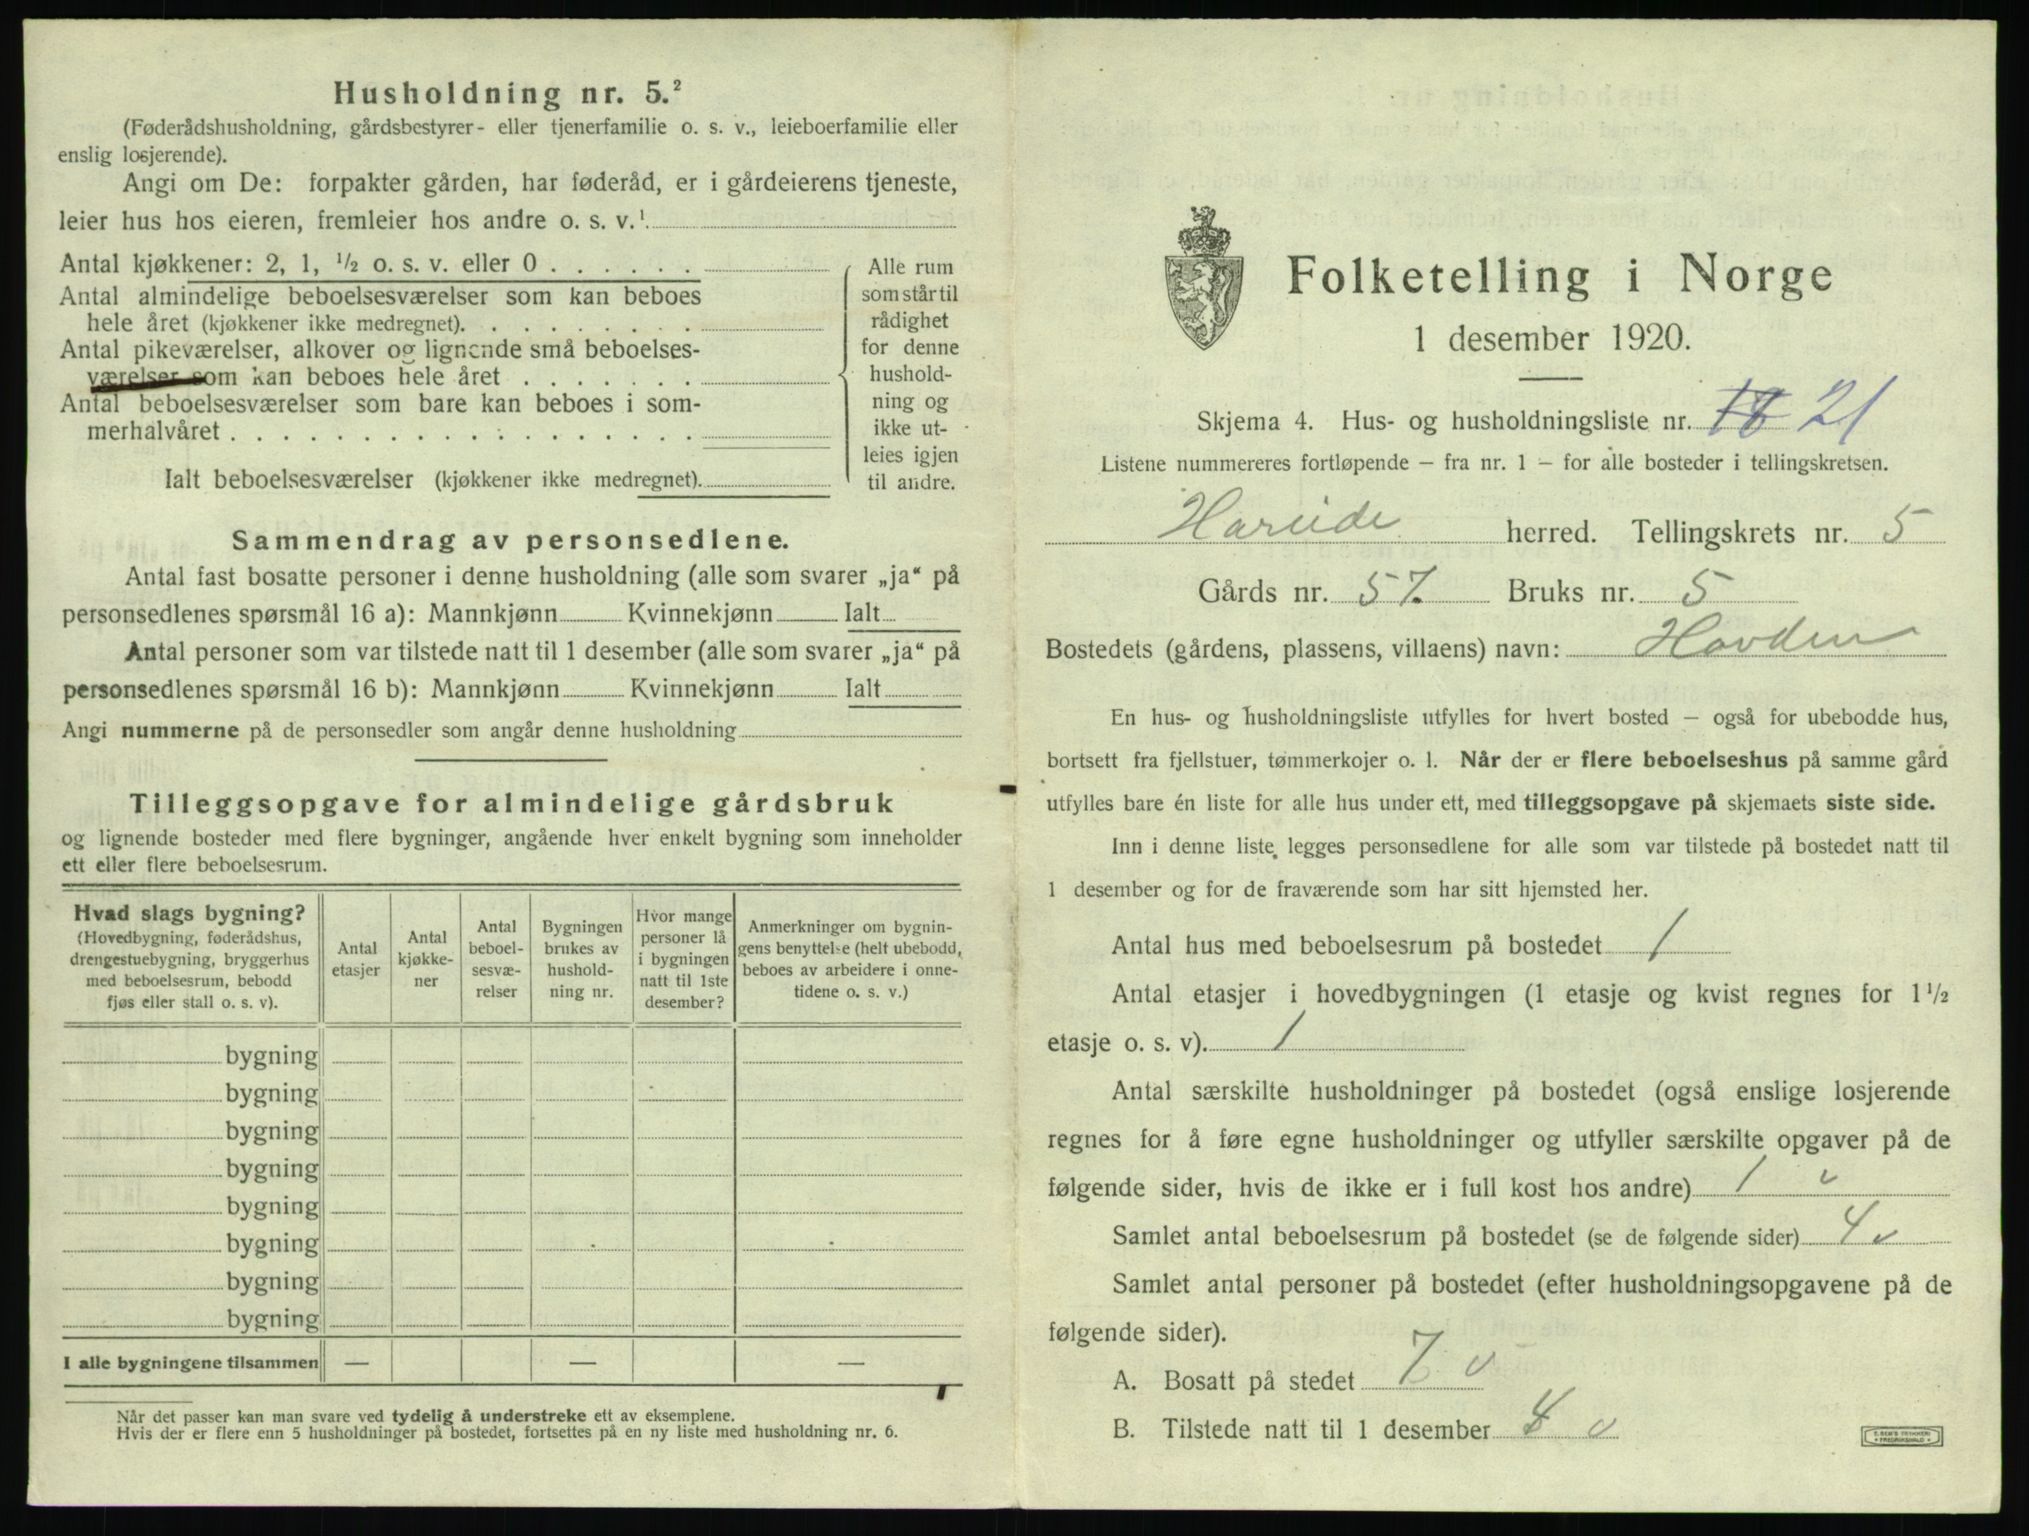 Husholdning nr. 5.²
(Føderådshusholdning, gårdsbestyrer- eller tjenerfamilie o. s. v., leieboerfamilie eller
enslig losjerende).
Angi om De: forpakter gården, har føderåd, er i gårdeierens tjeneste,
leier hus hos eieren, fremleier hos andre o. s. v.¹
Antal kjøkkener: 2, 1, ½ o. s. v. eller 0 . . . . . .
Antal almindelige beboelsesværelser som kan beboes
hele året (kjøkkener ikke medregnet). . . . . . . . .
Antal pikeværelser, alkover og lignende små beboelses-
værelser som kan beboes hele året . . . . . . .
Antal beboelsesværelser som bare kan beboes i som-
merhalvåret . . . . . . . . . . . . . . . . . .
Ialt beboelsesværelser (kjøkkener ikke medregnet).
Alle rum
som står til
rådighet
for denne
hushold-
ning og
ikke ut-
leies igjen
til andre.
Sammendrag av personsedlene.
Antal fast bosatte personer i denne husholdning (alle som svarer „ja“ på
personsedlenes spørsmål 16 a): Mannkjønn Kvinnekjønn Ialt
Antal personer som var tilstede natt til 1 desember (alle som svarer „ja“ på
personsedlenes spørsmål 16 b): Mannkjønn Kvinnekjønn Ialt
Angi nummerne på de personsedler som angår denne husholdning
Tilleggsopgave for almindelige gårdsbruk
og lignende bosteder med flere bygninger, angående hver enkelt bygning som inneholder
ett eller flere beboelsesrum.
Hvad slags bygning?
(Hovedbygning, føderådshus,
drengestuebygning, bryggerhus
med beboelsesrum, bebodd
fjøs eller stall o. s. v).
Antal
etasjer
Antal
kjøkke-
ner
Antal
beboel-
sesvæ-
relser
Bygningen
brukes av
hushold-
ning nr.
Hvor mange
personer lå
i bygningen
natt til 1ste
desember?
Anmerkninger om bygnin-
gens benyttelse (helt ubebodd,
beboes av arbeidere i onne-
tidene o. s. v.)
bygning
bygning
bygning
bygning
bygning
bygning
bygning
bygning
I alle bygningene tilsammen — — —
Når det passer kan man svare ved tydelig å understreke ett av eksemplene.
Hvis der er flere enn 5 husholdninger på bostedet, fortsettes på en ny liste med husholdning nr. 6.
Folketelling i Norge
1 desember 1920.
Skjema 4. Hus- og husholdningsliste nr. 18 21
Listene nummereres fortløpende – fra nr. 1 – for alle bosteder i tellingskretsen.
Hareide herred. Tellingskrets nr. 5
Gårds nr. 57. Bruks nr. 5
Bostedets (gårdens, plassens, villaens) navn: Hovden
En hus- og husholdningsliste utfylles for hvert bosted – også for ubebodde hus,
bortsett fra fjellstuer, tømmerkojer o. l. Når der er flere beboelseshus på samme gård
utfylles bare én liste for alle hus under ett, med tilleggsopgave på skjemaets siste side.
Inn i denne liste legges personsedlene for alle som var tilstede på bostedet natt til
1 desember og for de fraværende som har sitt hjemsted her.
Antal hus med beboelsesrum på bostedet 1
Antal etasjer i hovedbygningen (1 etasje og kvist regnes for 1½
etasje o. s. v). 1
Antal særskilte husholdninger på bostedet (også enslige losjerende
regnes for å føre egne husholdninger og utfyller særskilte opgaver på de
følgende sider, hvis de ikke er i full kost hos andre) 1 v
Samlet antal beboelsesrum på bostedet (se de følgende sider) 4 v
Samlet antal personer på bostedet (efter husholdningsopgavene på de
følgende sider).
A. Bosatt på stedet 7 v
B. Tilstede natt til 1 desember v